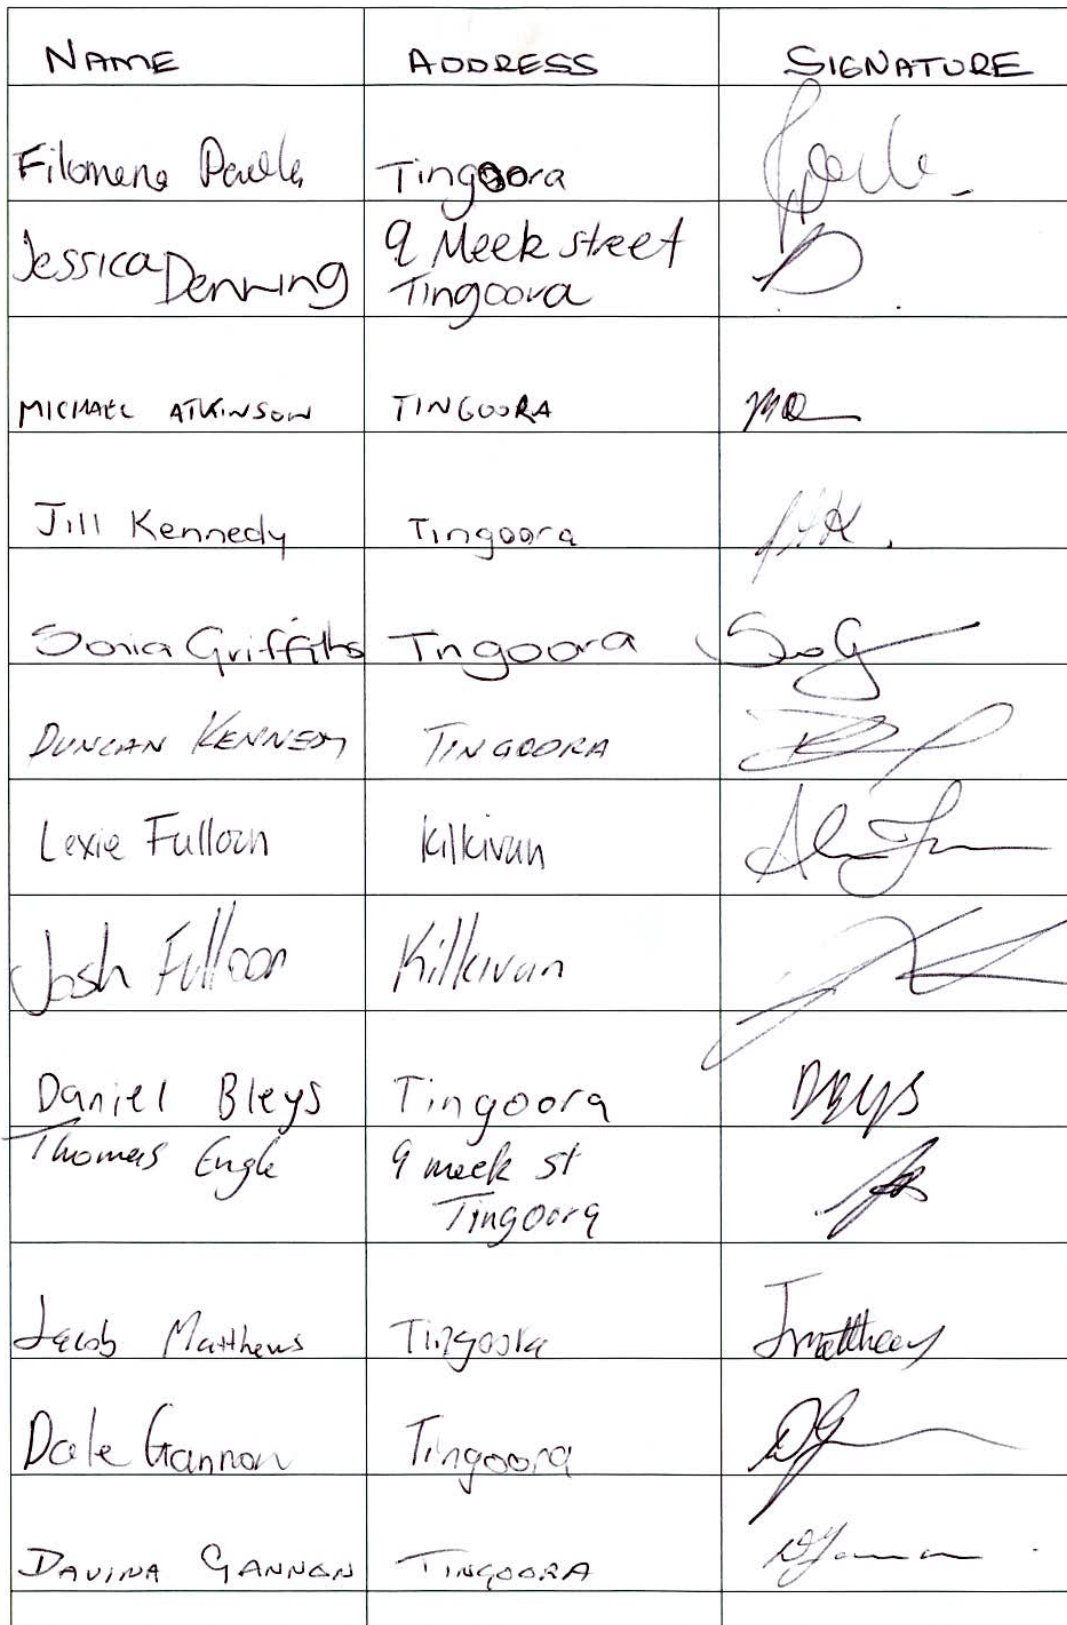 NAME ADDRESS SIGNATURE
Filomena Tingoora
Jessica Denning 9 Meek street
Tingoora
MICHAEL ATKINSON TINGOORA
Jill Kennedy Tingoora
Sonia Griffiths Tngoora
DUNCAN KENNEDY TINGOORA
Lexie Fulloon Kilkivan
Josh Fulloon Kilkivan
Daniel Bleys Tingoora
Thomas Engle 9 meek st
Tingoora
Jacob Matthews Tingoora Jmatthews
Dale Gannon Tingoora
DAVINA GANNON TINGOORA